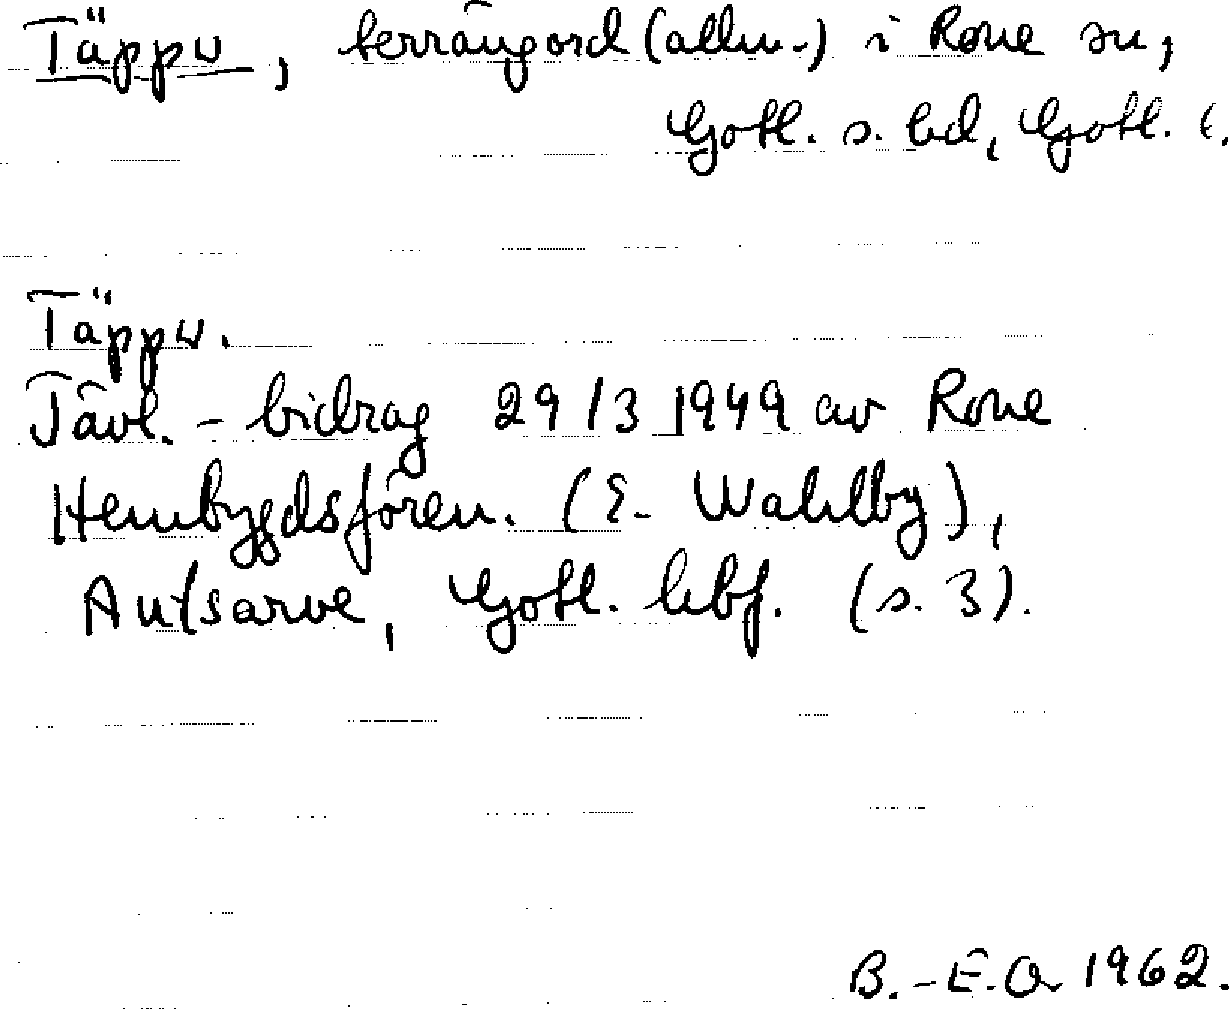 Täppu, terrängord (allm.) i Rone sn,
Gotl. s. hd, Gotl. l.
Täppu.
Tävl.-bidrag 29/3 1949 av Rone
Hembygdsfören. (E. Wahlby),
Autsarve, Gotl. hbf. (s. 3).
B.-E.O 1962.